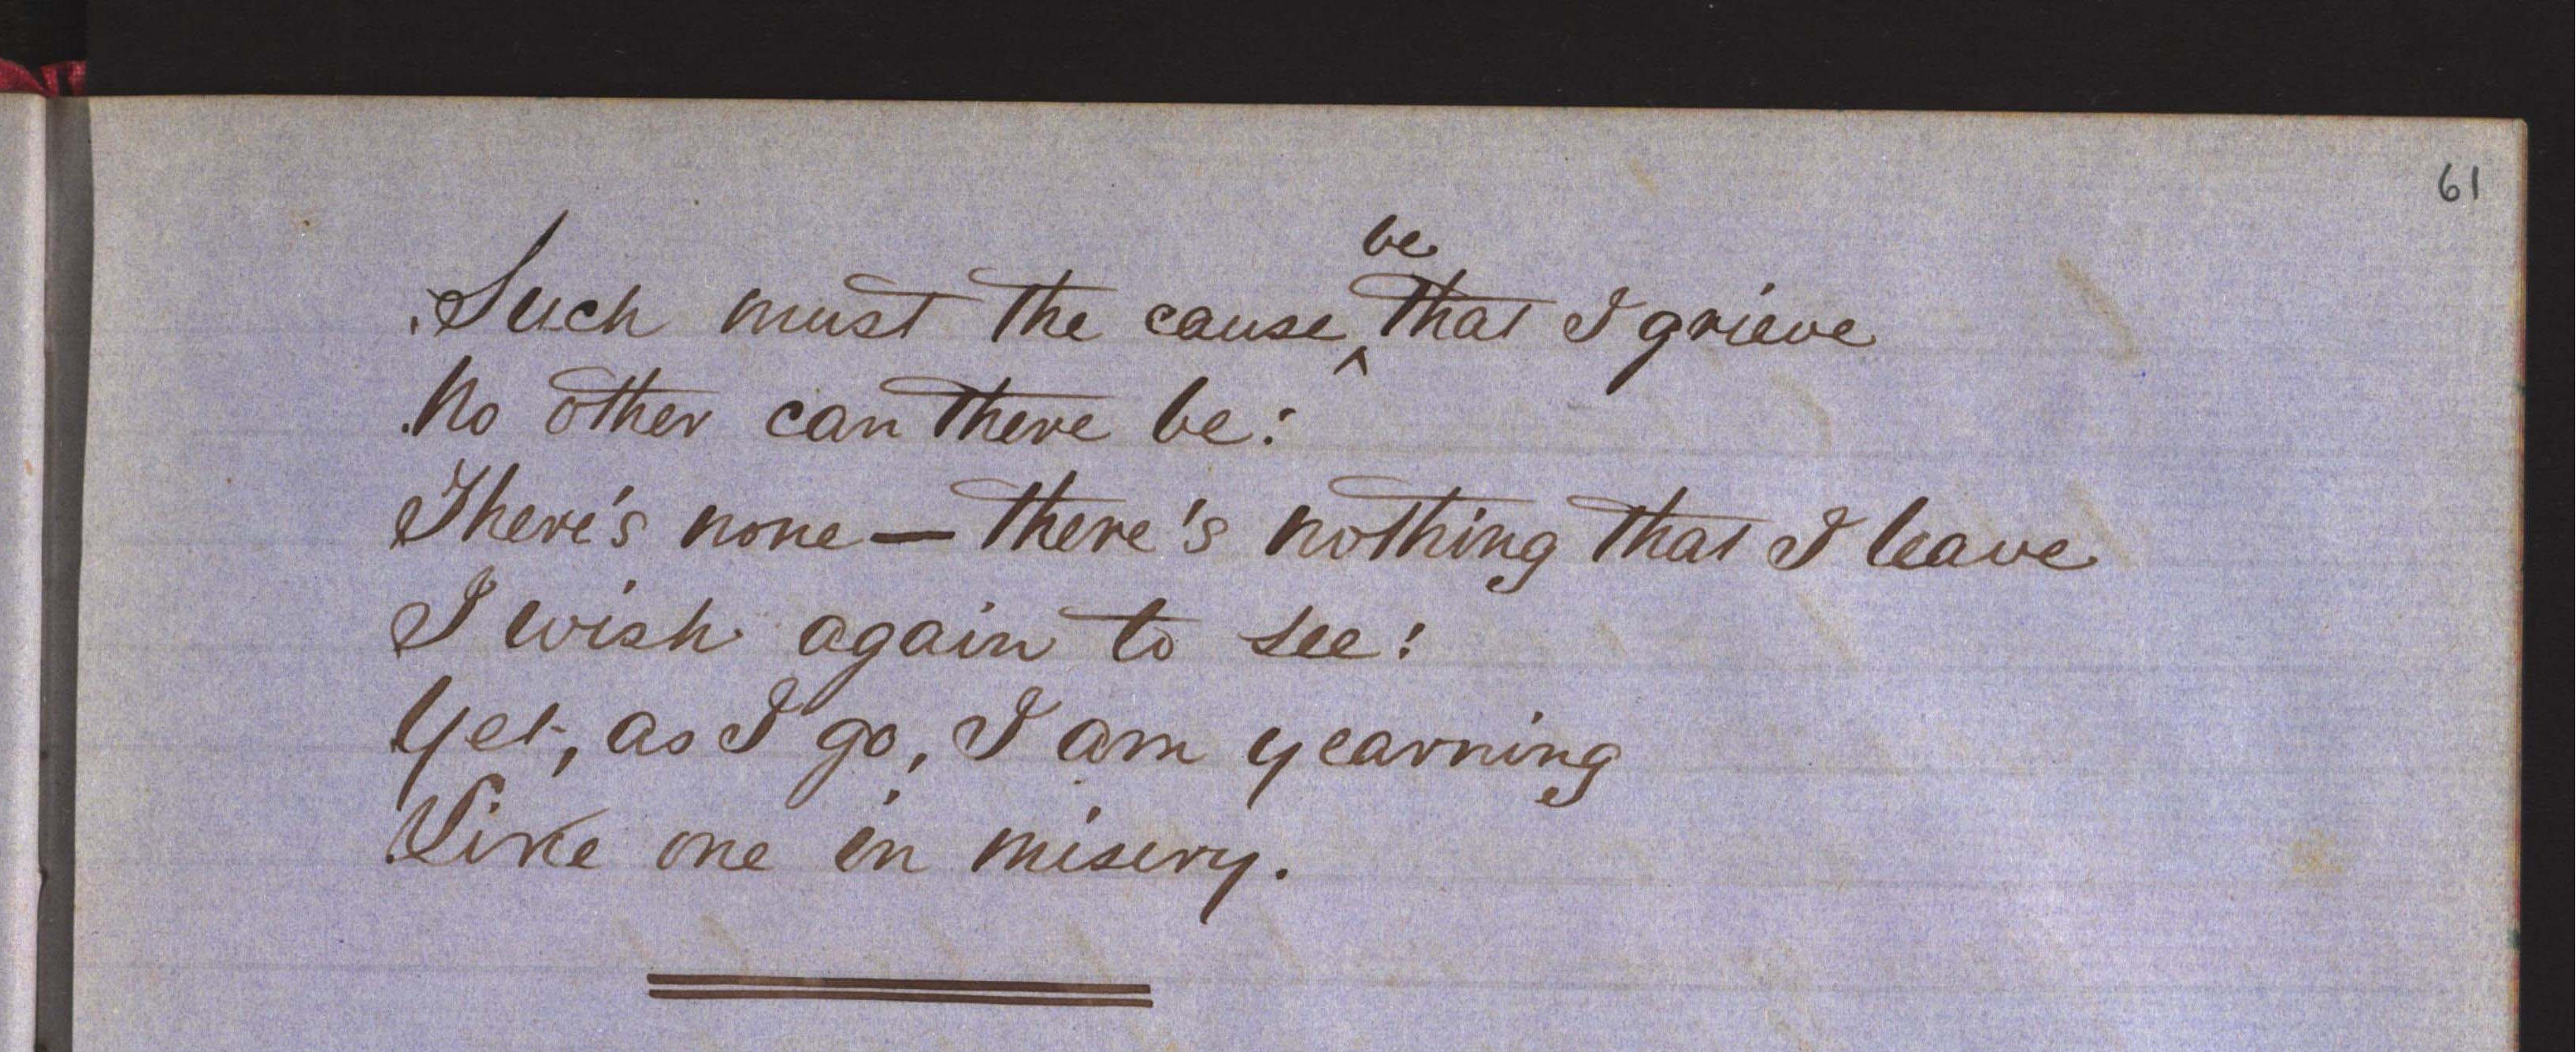 61
Such must the cause be that I grieve
No other can there be:
There's none — there's nothing that I leave
I wish again to see:
Yet, as I go, I am yearning
Like one in misery.